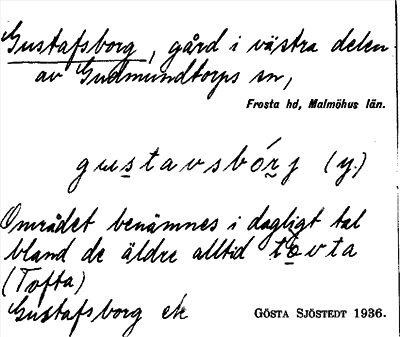 Gustafsborg, gård i västra delen
av Gudmundtorps sn,
Frosta hd, Malmöhus län.
gustavsbórj (y.)
Området benämnes i dagligt tal
bland de äldre alltid tovta
(Tofta)
Gustafsborg ek
GÖSTA SJÖSTEDT 1936.